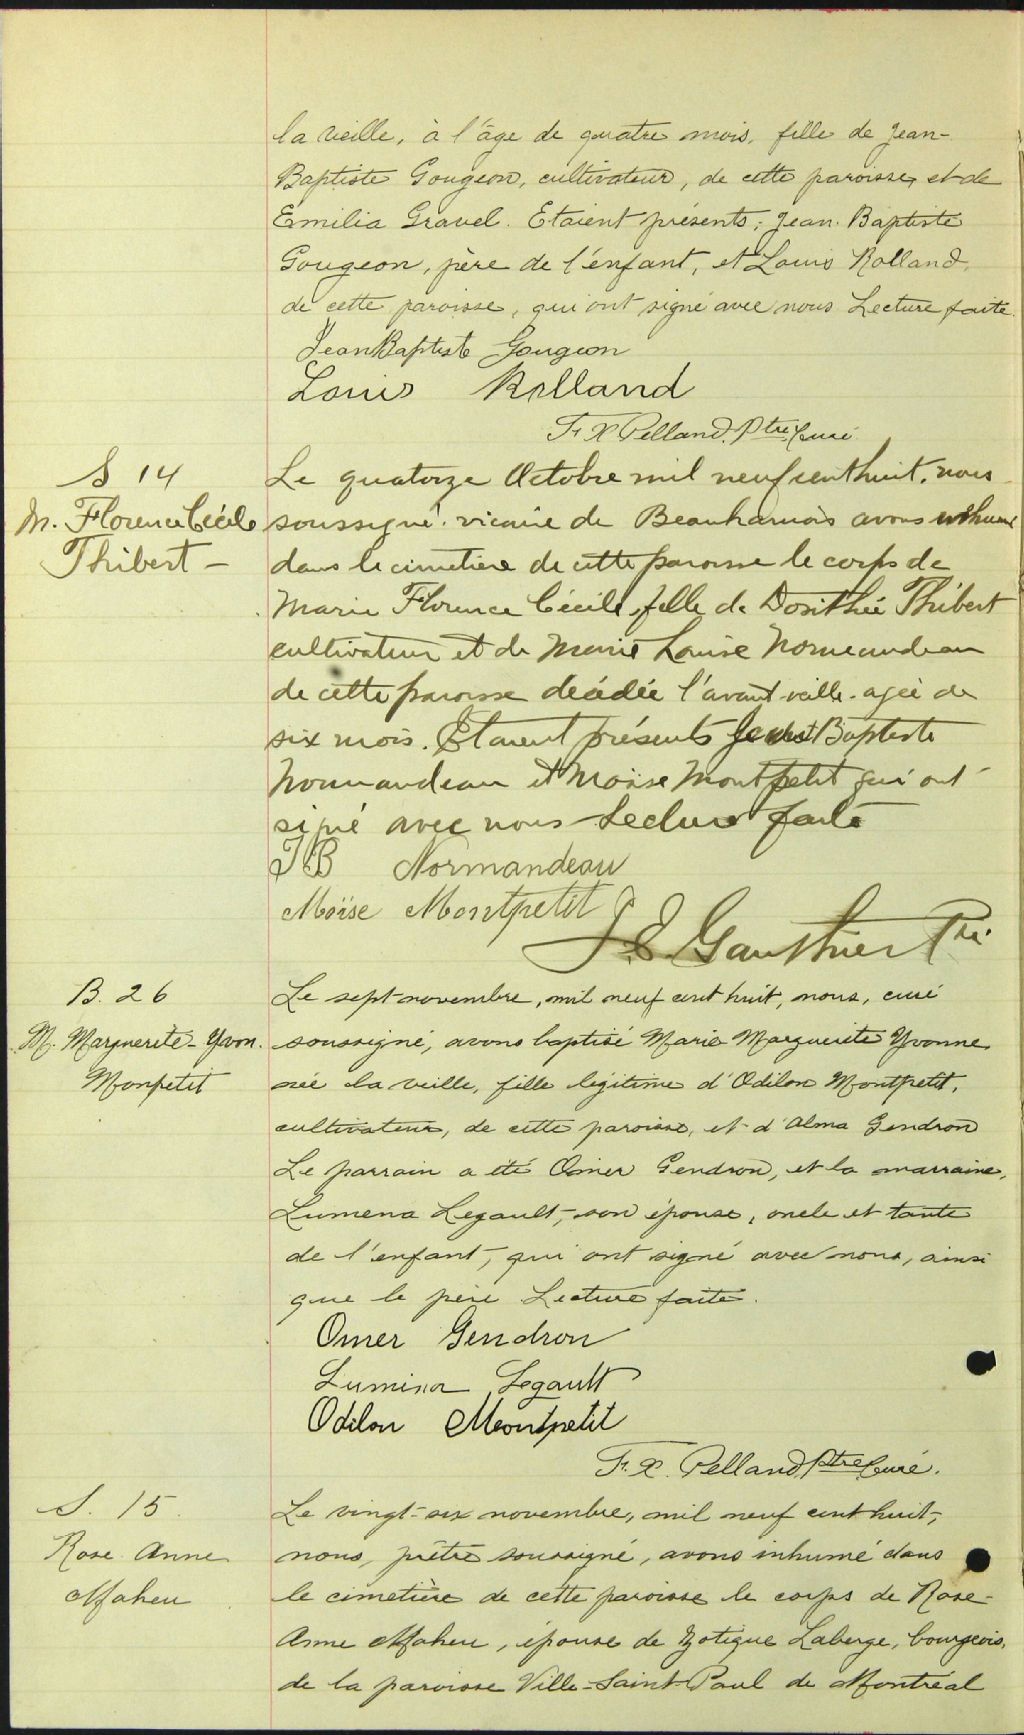 la vieille, à l'âge de quatre mois, fille de Jean-
Baptiste Gougeon, cultivateur, de cette paroisse, et de
Emilia Gravel. Etaient présents; Jean-Baptiste
Gougeon, père de l'enfant, et Louis Rolland,
de cette paroisse, qui ont signé avec nous Lecture faite.
Jean Baptiste Gougeon
Louis Rolland
F. X. Pelland, Ptre Curé
S 14
M. Florence Cécile
Thibert -
Le quatorze Octobre mil neuf cent huit, nous
soussigné vicaire de Beauharnois avons inhumé
dans le cimetière de cette paroisse le corps de
Marie Florence Cécile, fille de Dosithée Thibert
cultivateur et de Marie Louise Normandeau
de cette paroisse décédée l'avant veille agée de
six mois. Etaient présents Jean Baptiste
Normandeau et Moïse Montpetit qui ont
signé avec nous Lecture faite
J B Normandeau
Moïse Montpetit
J. E. Gauthier Ptre
B. 26
M. Marguerite-Yvon.
Monpetit
Le sept novembre, mil neuf cent huit, nous, curé
soussigné, avons baptisé Marie Marguerite Yvonne
née la veille, fille légitime d'Odilon Montpetit,
cultivateur, de cette paroisse, et d'Alma Gendron
Le parrain a été Omer Gendron, et la marraine,
Lumena Legault, son épouse, oncle et tante
de l'enfant, qui ont signé avec nous, ainsi
que le père Lecture faite.
Omer Gendron
Lumina Legault
Odilon Montpetit
F. X. Pelland, Ptre Curé.
S. 15.
Rose Anne
Maheu
Le vingt-six novembre, mil neuf cent huit,
nous, prêtre soussigné, avons inhumé dans
le cimetière de cette paroisse le corps de Rose-
Anne Maheu, épouse de Zotique Laberge, bourgeois,
de la paroisse Ville-Saint-Paul de Montréal